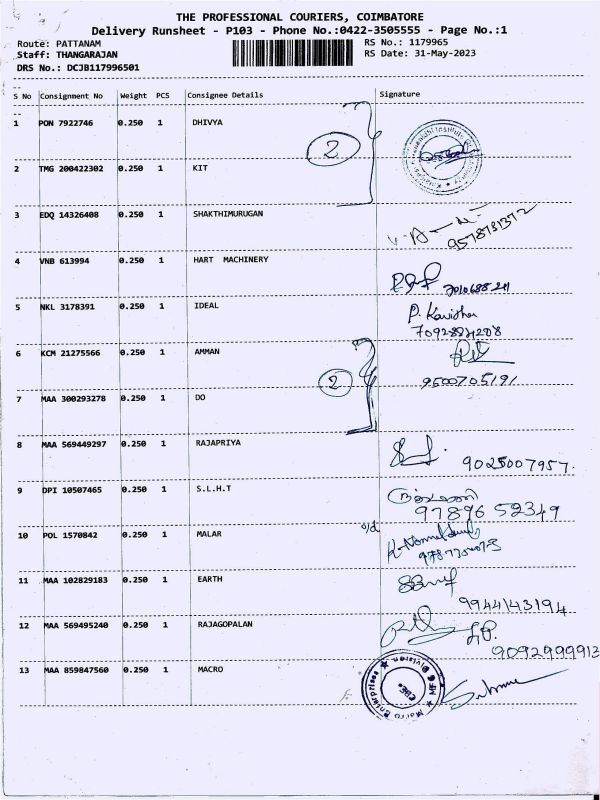 THE PROFESSIONAL COURIERS, COIMBATORE
Delivery Runsheet - P103 - Phone No.:0422-3505555 - Page No.:1
Route: PATTANAM
RS No.: 1179965
Staff: THANGARAJAN
RS Date: 31-May-2023
DRS No.: DCJB117996501
S No Consignment No Weight PCS Consignee Details Signature
1 PON 7922746 0.250 1 DHIVYA
2
2 TMG 200422302 0.250 1 KIT
3 EDQ 14326408 0.250 1 SHAKTHIMURUGAN
9578781372
4 VNB 613994 0.250 1 HART MACHINERY
5 NKL 3178391 0.250 1 IDEAL
P. Kavitha
7092884208
6 KCM 21275566 0.250 1 AMMAN
2
9500705191
7 MAA 300293278 0.250 1 DO
8 MAA 569449297 0.250 1 RAJAPRIYA
9025007957.
9 DPI 10507465 0.250 1 S.L.H.T
97896 52349
10 POL 1570842 0.250 1 MALAR
o/d
11 MAA 102829183 0.250 1 EARTH
9944143194
12 MAA 569495240 0.250 1 RAJAGOPALAN
9092999913
13 MAA 859847560 0.250 1 MACRO
Macro Enterprises ★ MFG Division ★
CBE.